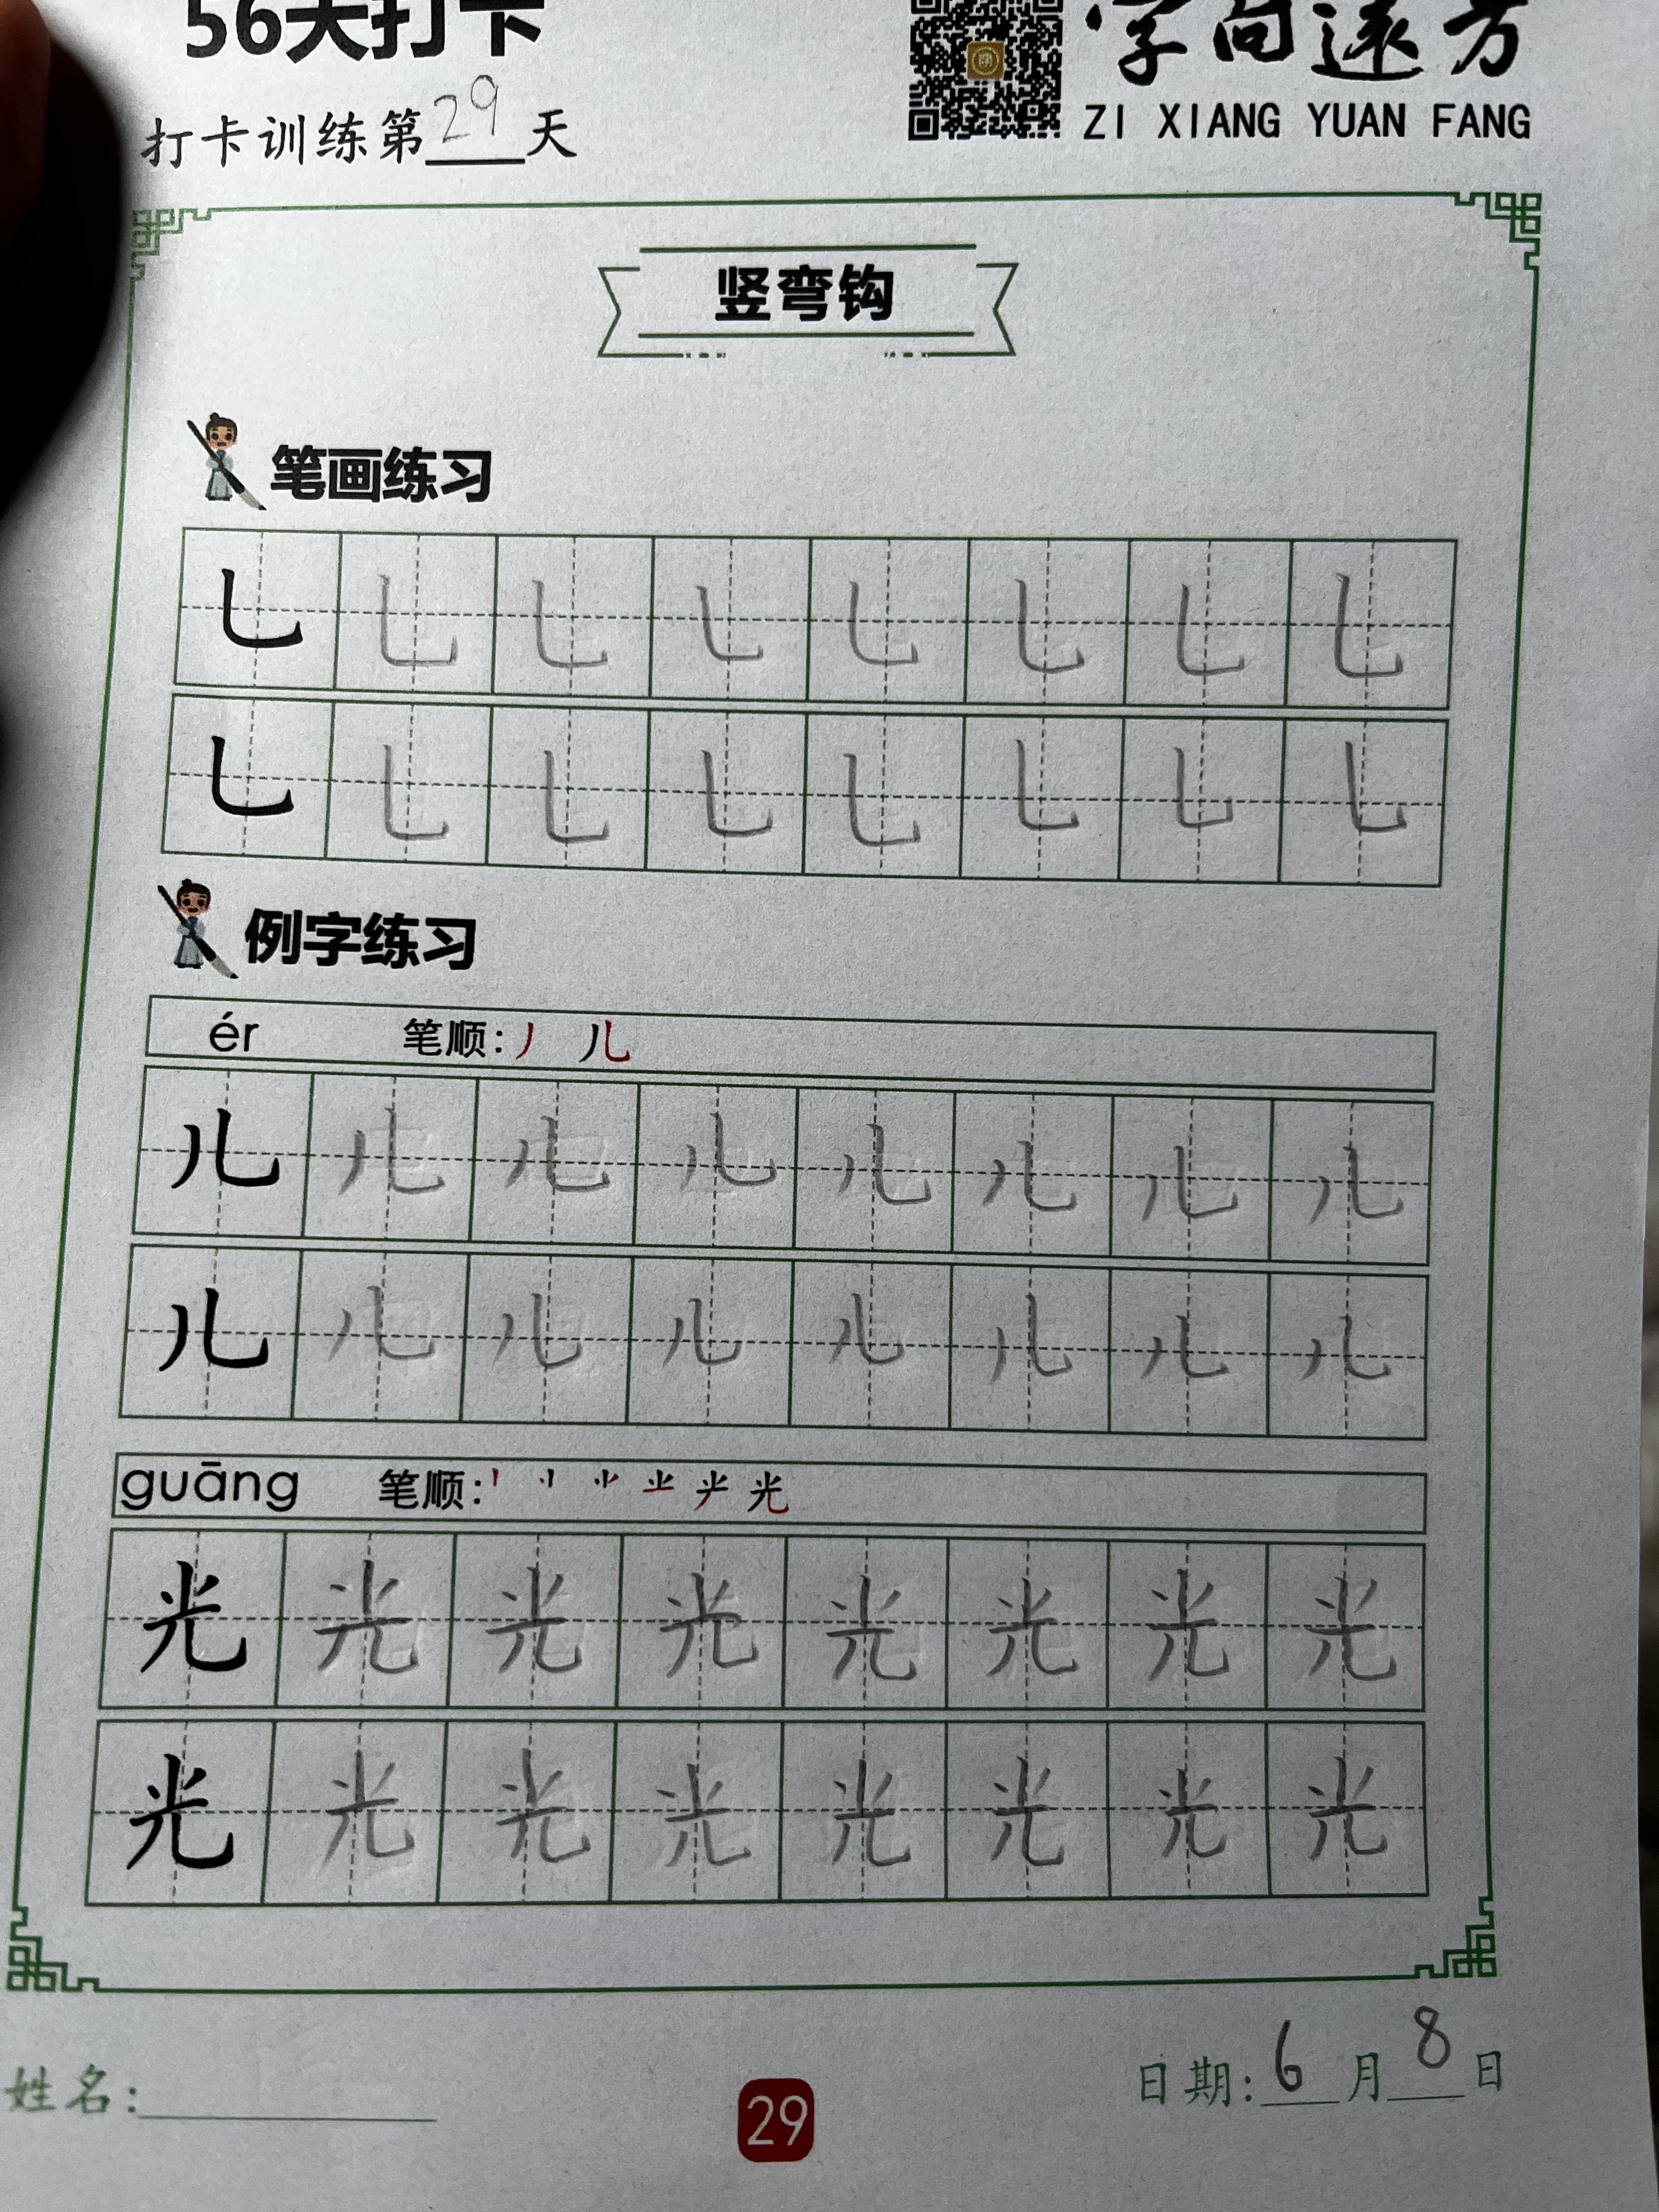 56天打卡
字向远方
ZI XIANG YUAN FANG
打卡训练第29天
竖弯钩
笔画练习
乚 乚 乚 乚 乚 乚 乚 乚
乚 乚 乚 乚 乚 乚 乚 乚
例字练习
ér 笔顺:丿 儿
儿 儿 儿 儿 儿 儿 儿 儿
儿 儿 儿 儿 儿 儿 儿 儿
guāng 笔顺: 光
光 光 光 光 光 光 光 光
光 光 光 光 光 光 光 光
姓名:
29
日期:6月8日